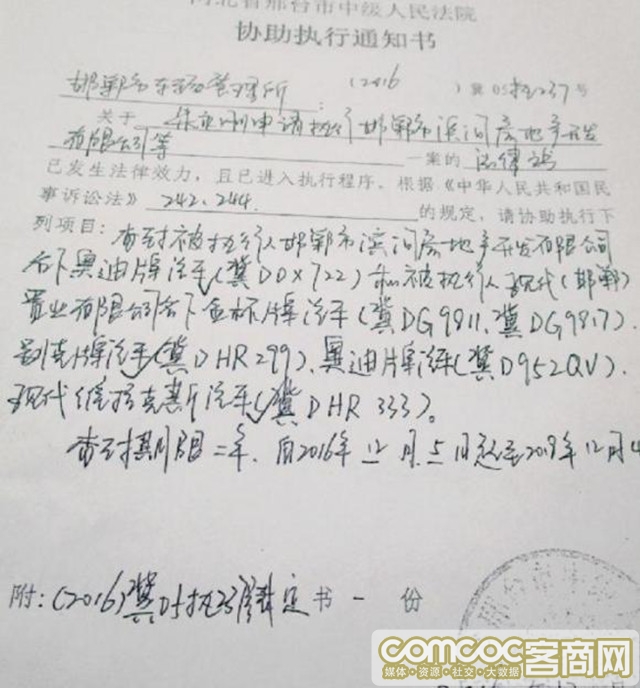 河北省邢台市中级人民法院
协助执行通知书
邯郸市车辆管理所 : (2016)冀05执237号
关于 申请执行邯郸市滨河房地产开发
有限公司等 一案的 法律
已发生法律效力，且已进入执行程序。根据《中华人民共和国民
事诉讼法》 242、244. 的规定，请协助执行下
列项目：查封被执行人邯郸市滨河房地产开发有限公司
名下奥迪牌汽车(冀D0X722)和被执行人现代(邯郸)
置业有限公司名下金杯牌汽车(冀DG9811、冀DG9817)、
别克牌汽车(冀DHR299)、奥迪牌汽车(冀D952QV)、
现代维拉克斯汽车(冀DHR333)。
查封期限二年，自2016年12月5日起至2018年12月4
附：(2016)冀05执237 裁定书一份
comcoc客商网
媒体·资源·社交·大数据